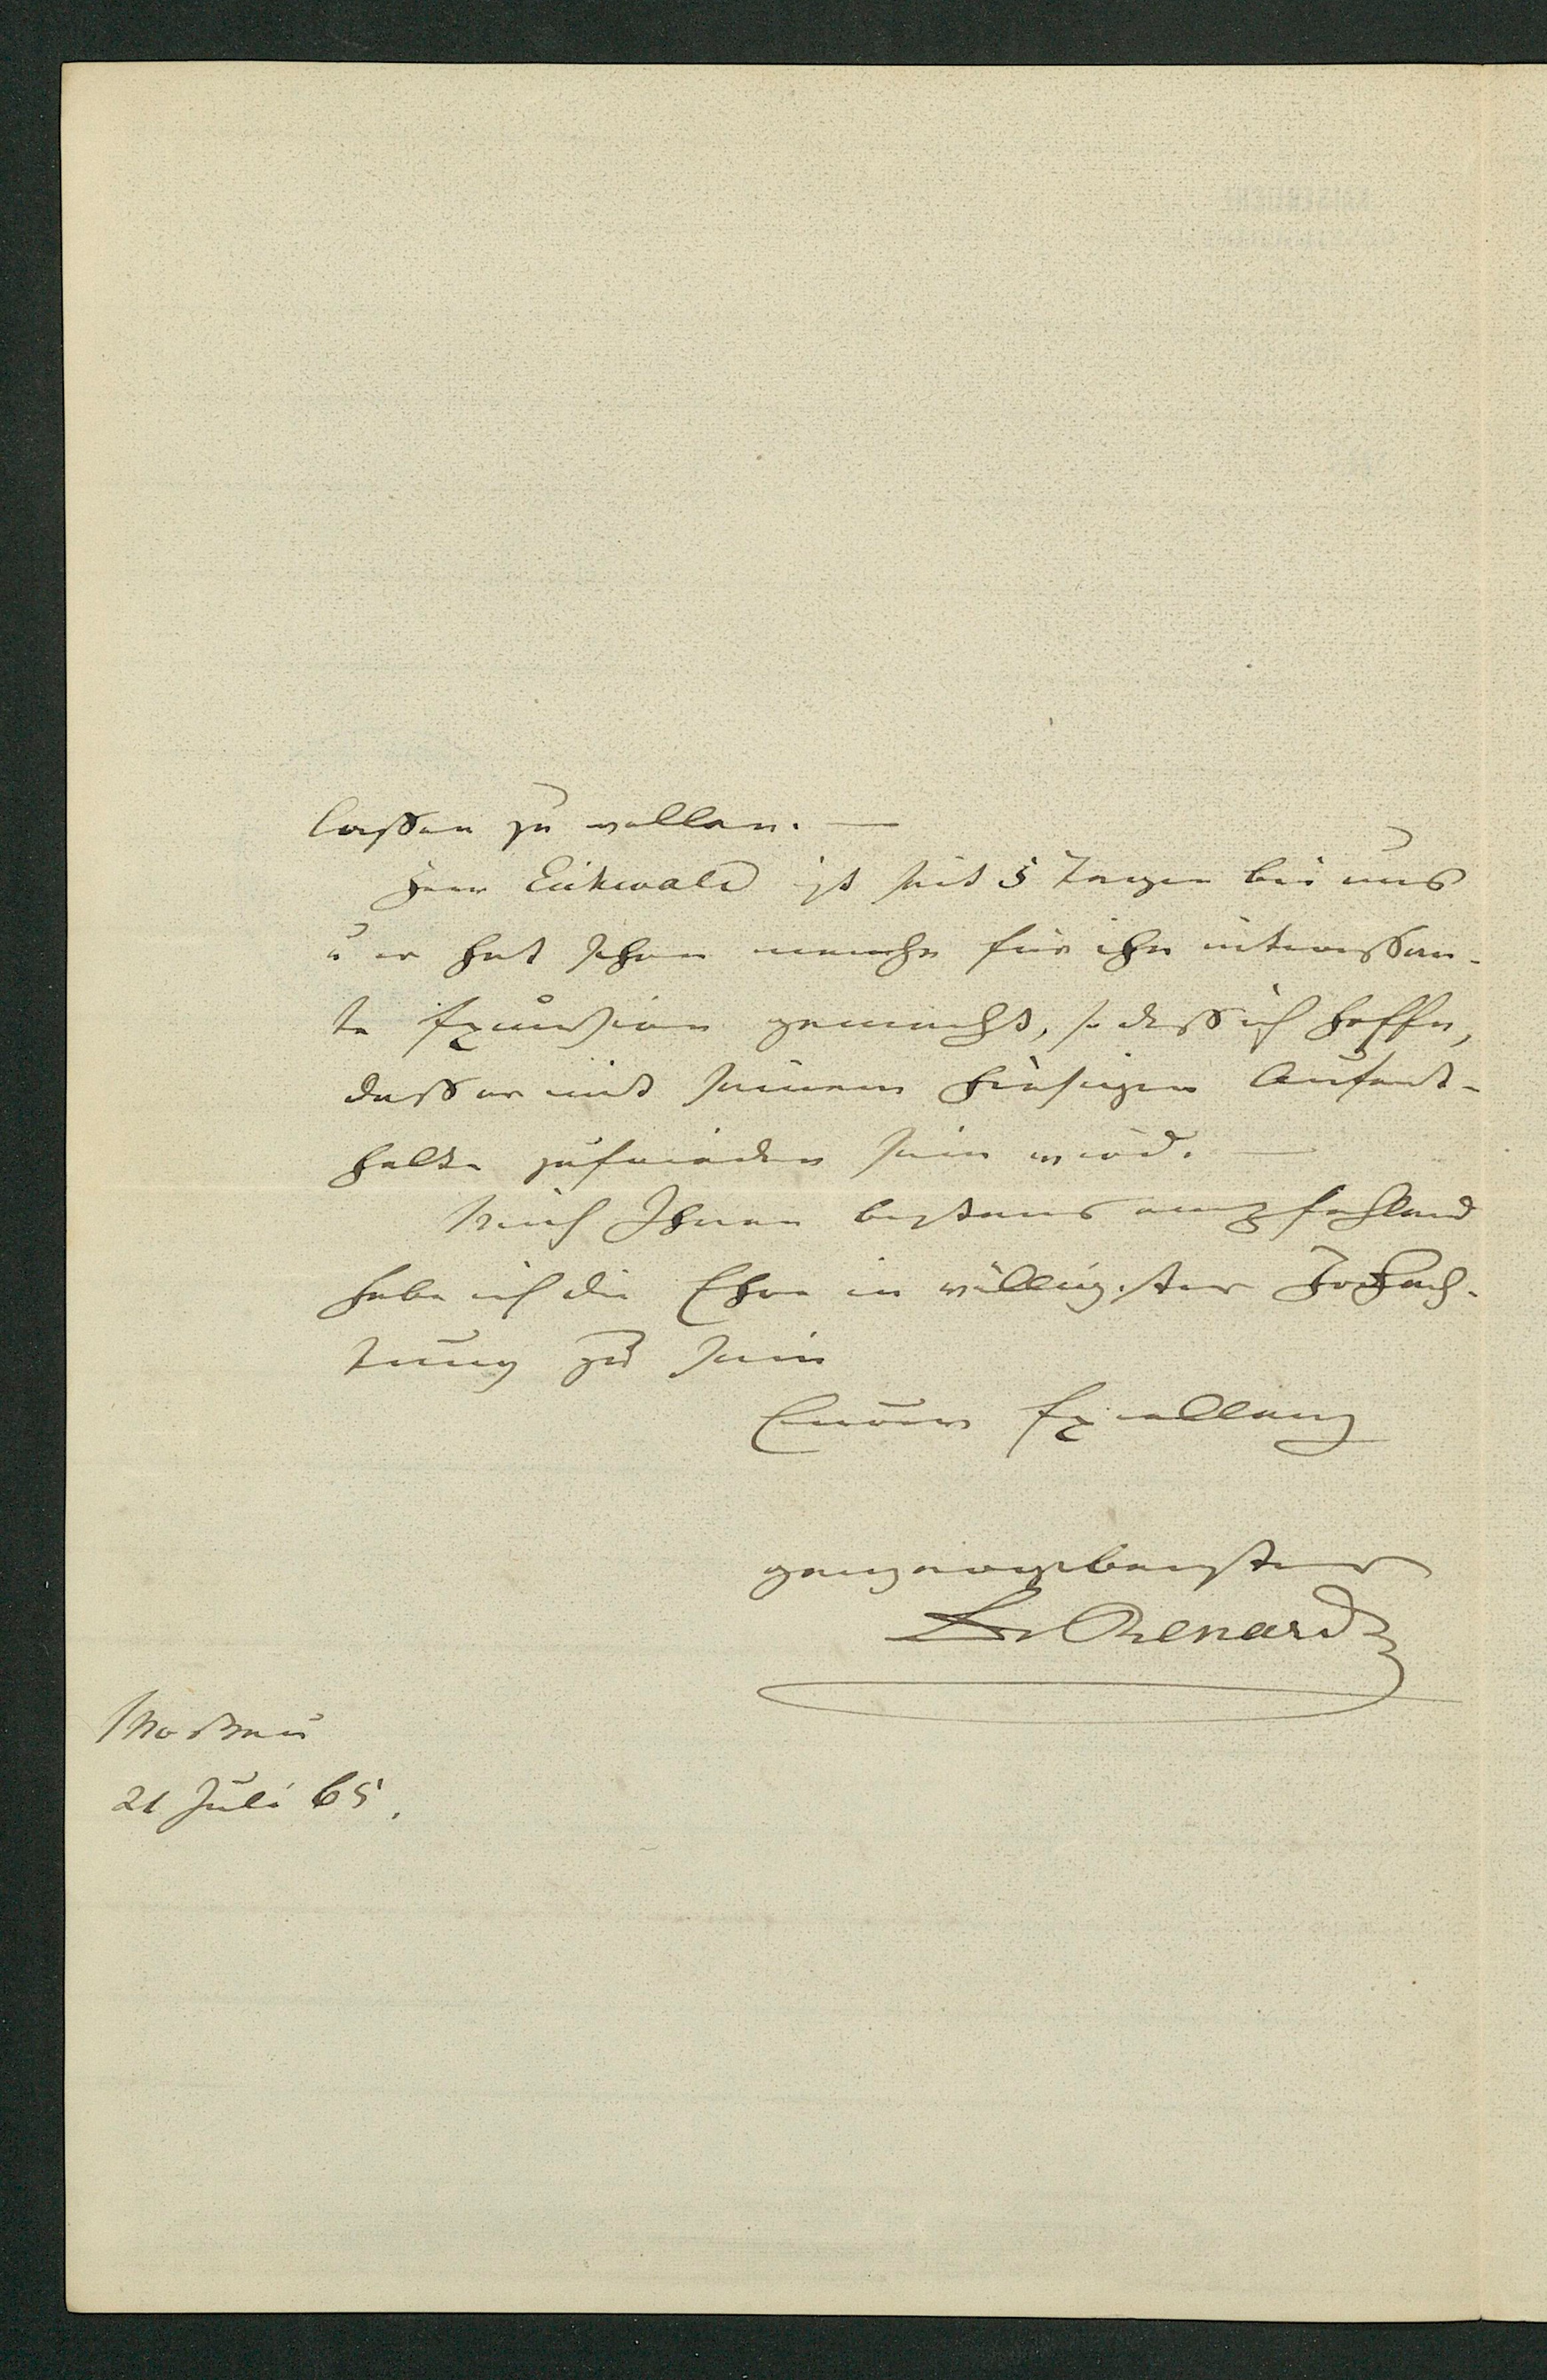 lassen zu wollen. —
Herr Eichwald ist seit 5 Tagen bei uns
u er hat schon manche für ihn interessan-
te Excursion gemacht, so dass ich hoffe,
dass er mit seinem hiesigen Aufent-
halte zufrieden sein wird. —
Mich Ihnen bestens empfehlend
habe ich die Ehre in völligster Hochach-
tung zu sein
Euerer Excellenz
ganz ergebenster
Dr Renard
Moskau
21 Juli 65.